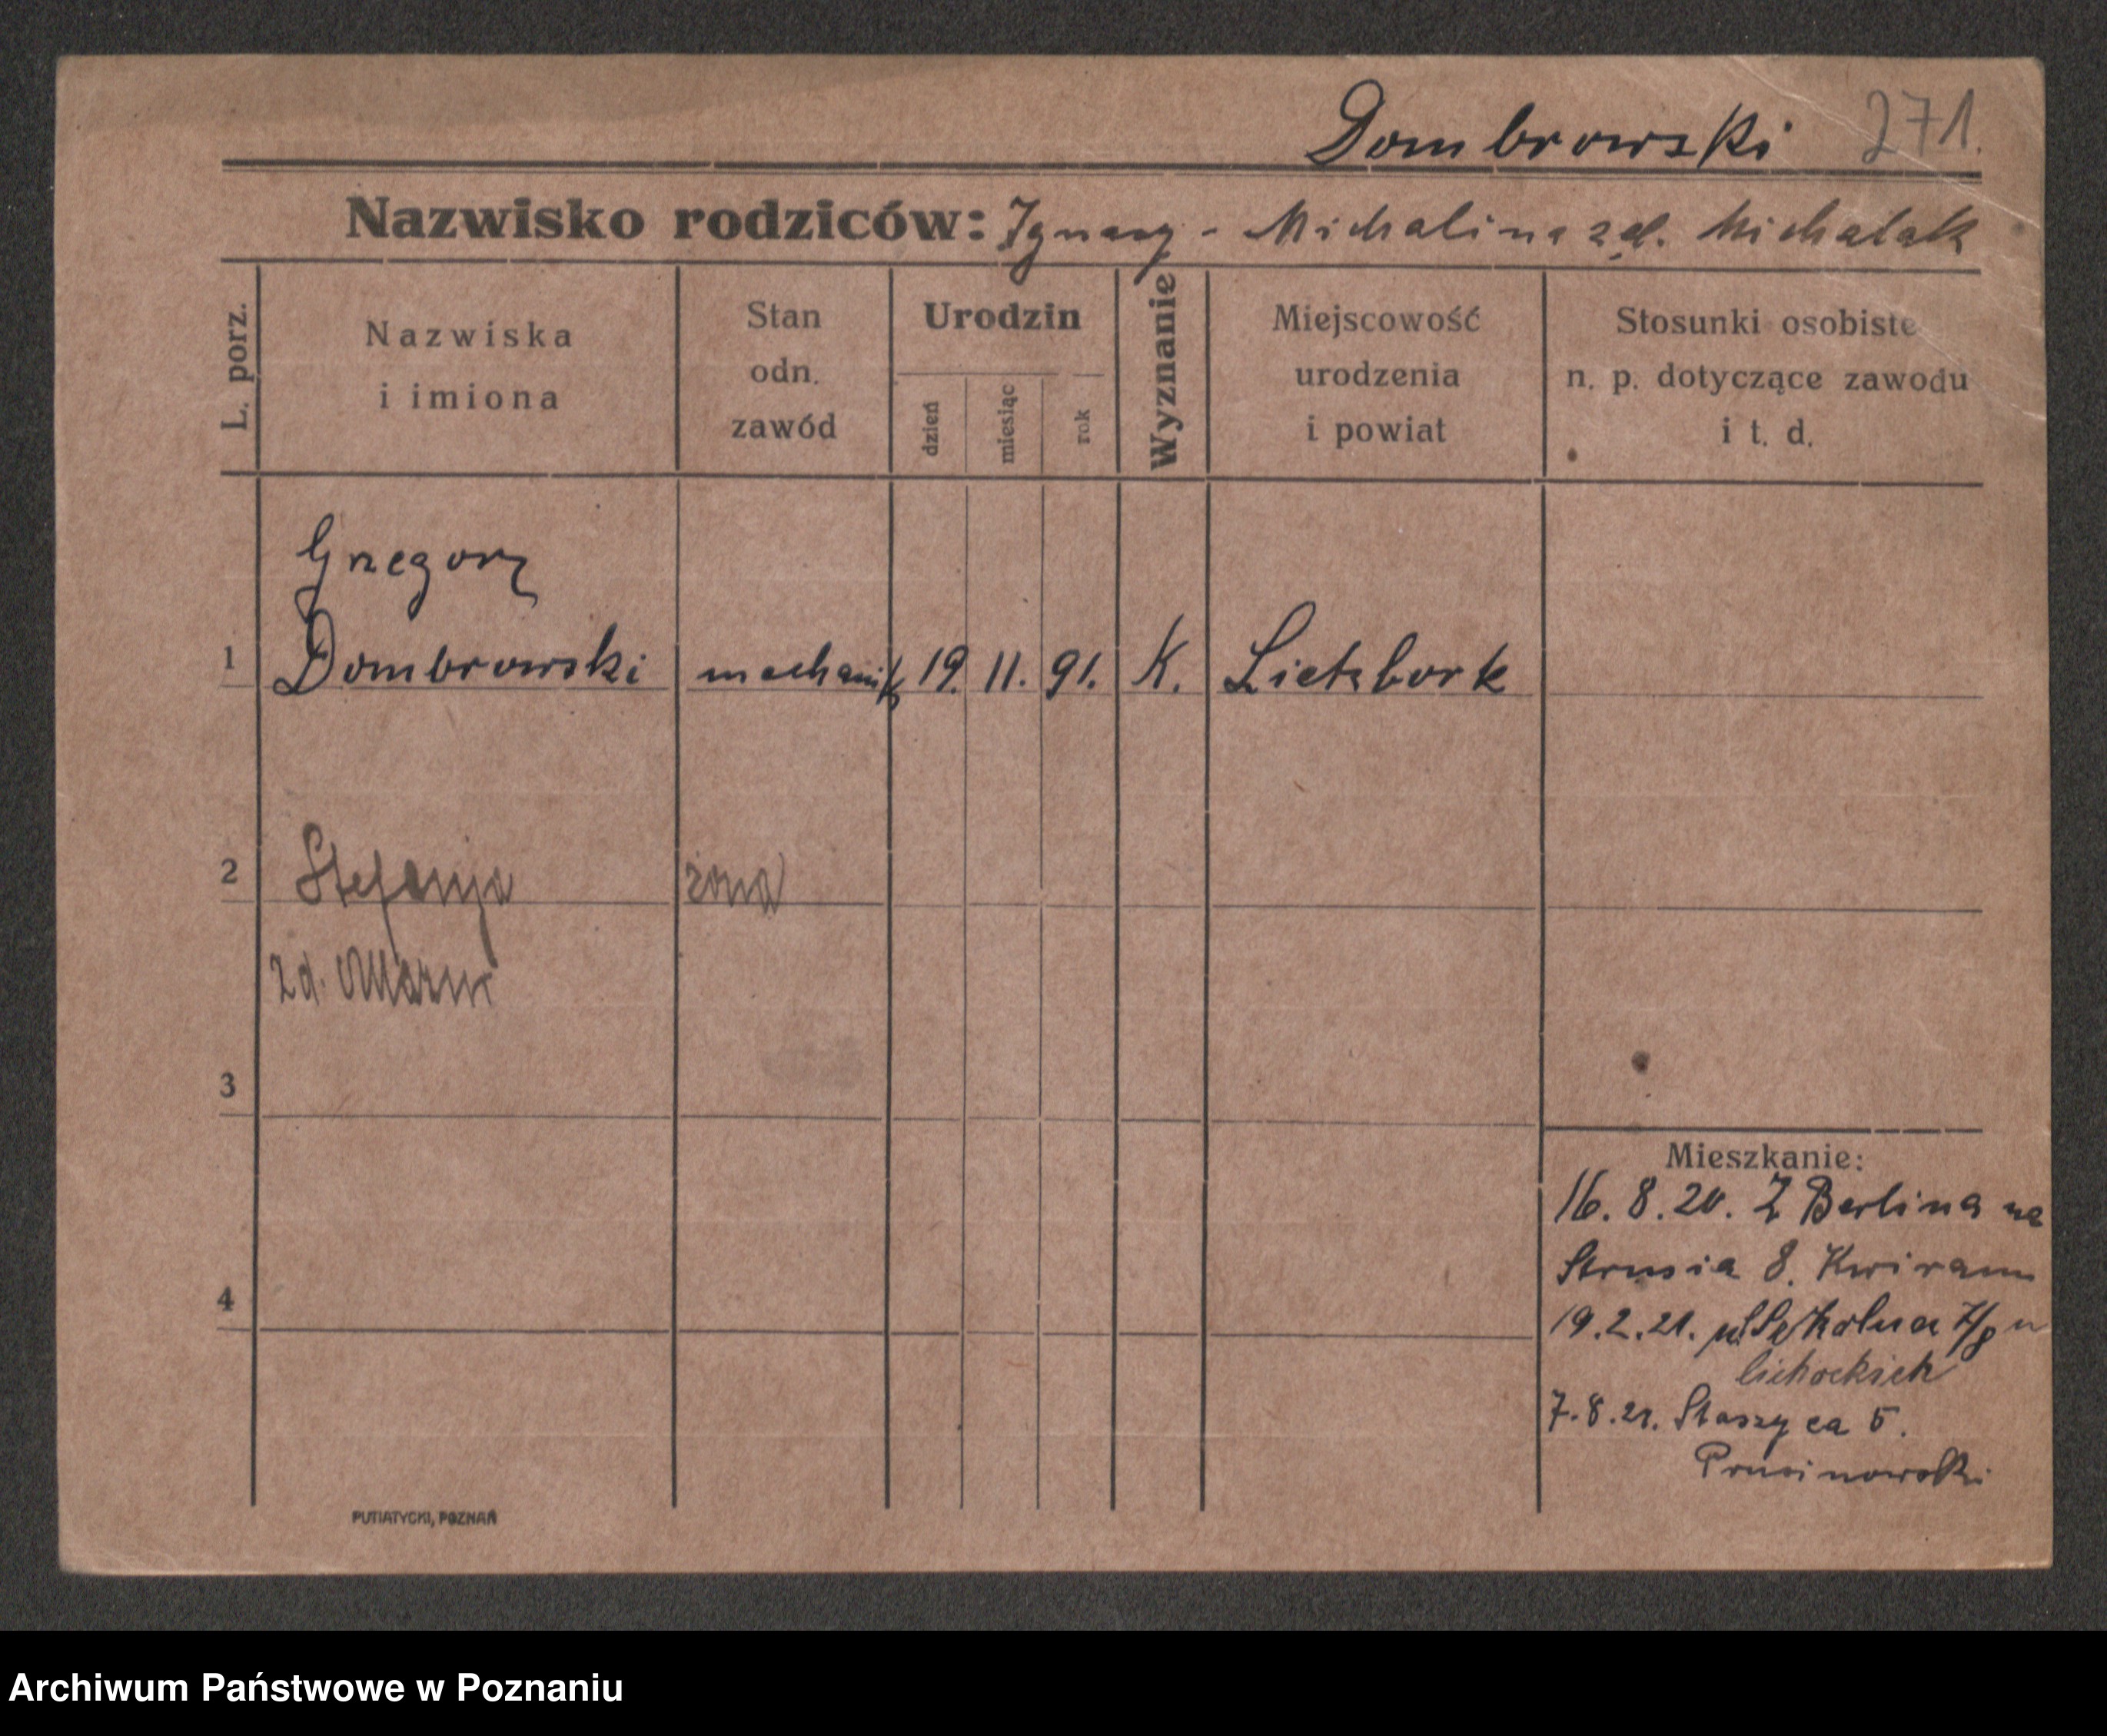 Dombrowski 271.
Nazwisko rodziców: Ignacy - Michalina z d. Michalak
L. porz.
Nazwiska
i imiona
Stan
odn.
zawód
Urodzin
dzień
miesiąc
rok
Wyznanie
Miejscowość
urodzenia
i powiat
Stosunki osobiste
n. p. dotyczące zawodu
i t. d.
Grzegorz
1 Dombrowski mechanik 19. 11. 91. K. Lietzbork
2 Stefanja żona
zd.
3
4
Mieszkanie:
16. 8. 20. Z Berlina na
Strusia 8. Kwiram
19.2.21. ul Szkolna 7/8 u
Cichockich
7.8.21. Staszyca 5.
Prusinowski
PUTIATYCKI, POZNAŃ
Archiwum Państwowe w Poznaniu